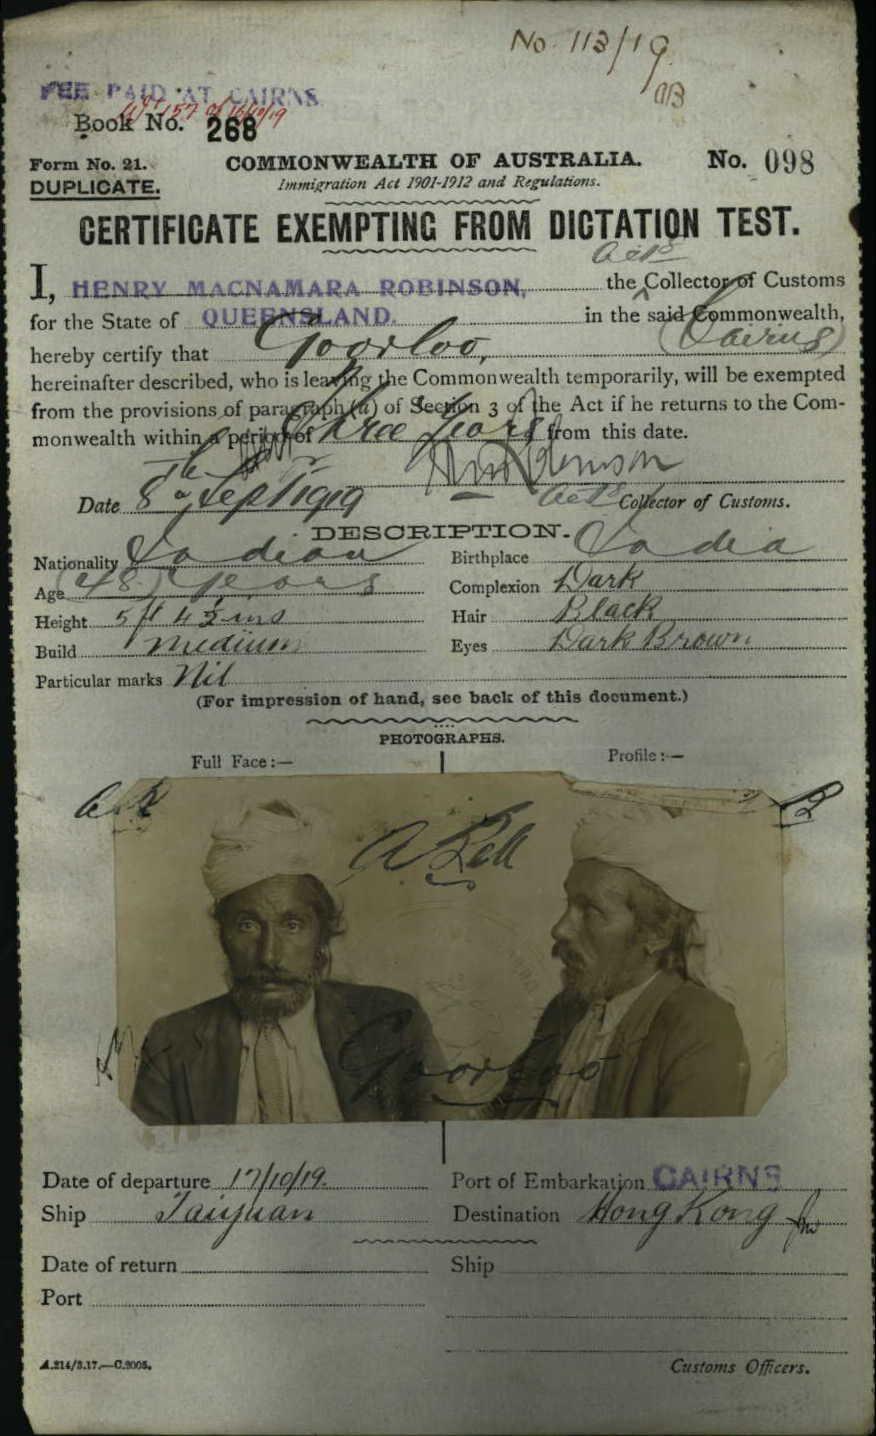 No 113/19
FEE PAID AT CAIRNS
157 of 16/10/19
Book No. 268
Form No. 21. COMMONWEALTH OF AUSTRALIA. No. 098
DUPLICATE. Immigration Act 1901-1912 and Regulations.
CERTIFICATE EXEMPTING FROM DICTATION TEST.
I, HENRY MACNAMARA ROBINSON, the Actg Collector of Customs
for the State of QUEENSLAND. in the said Commonwealth,
(Cairns)
hereby certify that Goorloo,
hereinafter described, who is leaving the Commonwealth temporarily, will be exempted
from the provisions of paragraph (a) of Section 3 of the Act if he returns to the Com-
monwealth within a period of Three Years from this date.
Date 8th Sept 1919 Collector of Customs.
DESCRIPTION.
Nationality Indian Birthplace India
Age (48) years Complexion Dark
Height 5 ft 4½ ins Hair Black
Build Medium Eyes Dark Brown
Particular marks Nil
(For impression of hand, see back of this document.)
PHOTOGRAPHS.
Full Face:— Profile:—
A Bell
Goorloo
Date of departure 17/10/19. Port of Embarkation CAIRNS
Ship Taiyuan Destination Hong Kong
Date of return Ship
Port
A.214/3.17.—C.2005. Customs Officers.